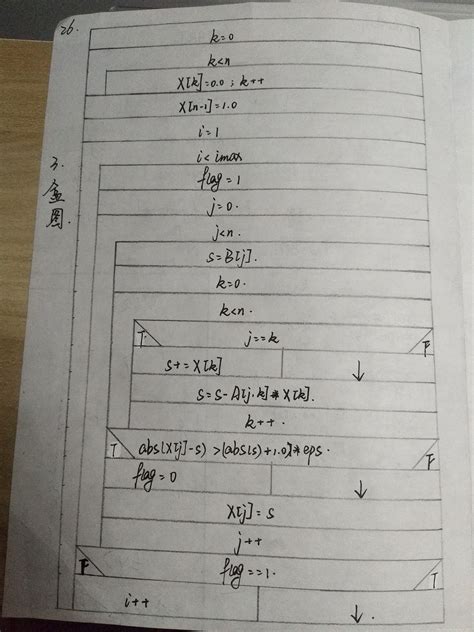 26.
k=0
k<n
X[k]=0.0 ; k++
X[n-1]=1.0
i=1
i<imax
flag=1
j=0.
j<n.
S=B[j].
k=0.
k<n.
T. j==k F
S+=X[k] ↓
S=S-A[j.k]*X[k].
k++.
T abs(X[j]-s) >(abs(s)+1.0)*eps. F
flag=0 ↓
X[j]=s
j++
F flag==1. T
i++ ↓.
3.
盒
图.